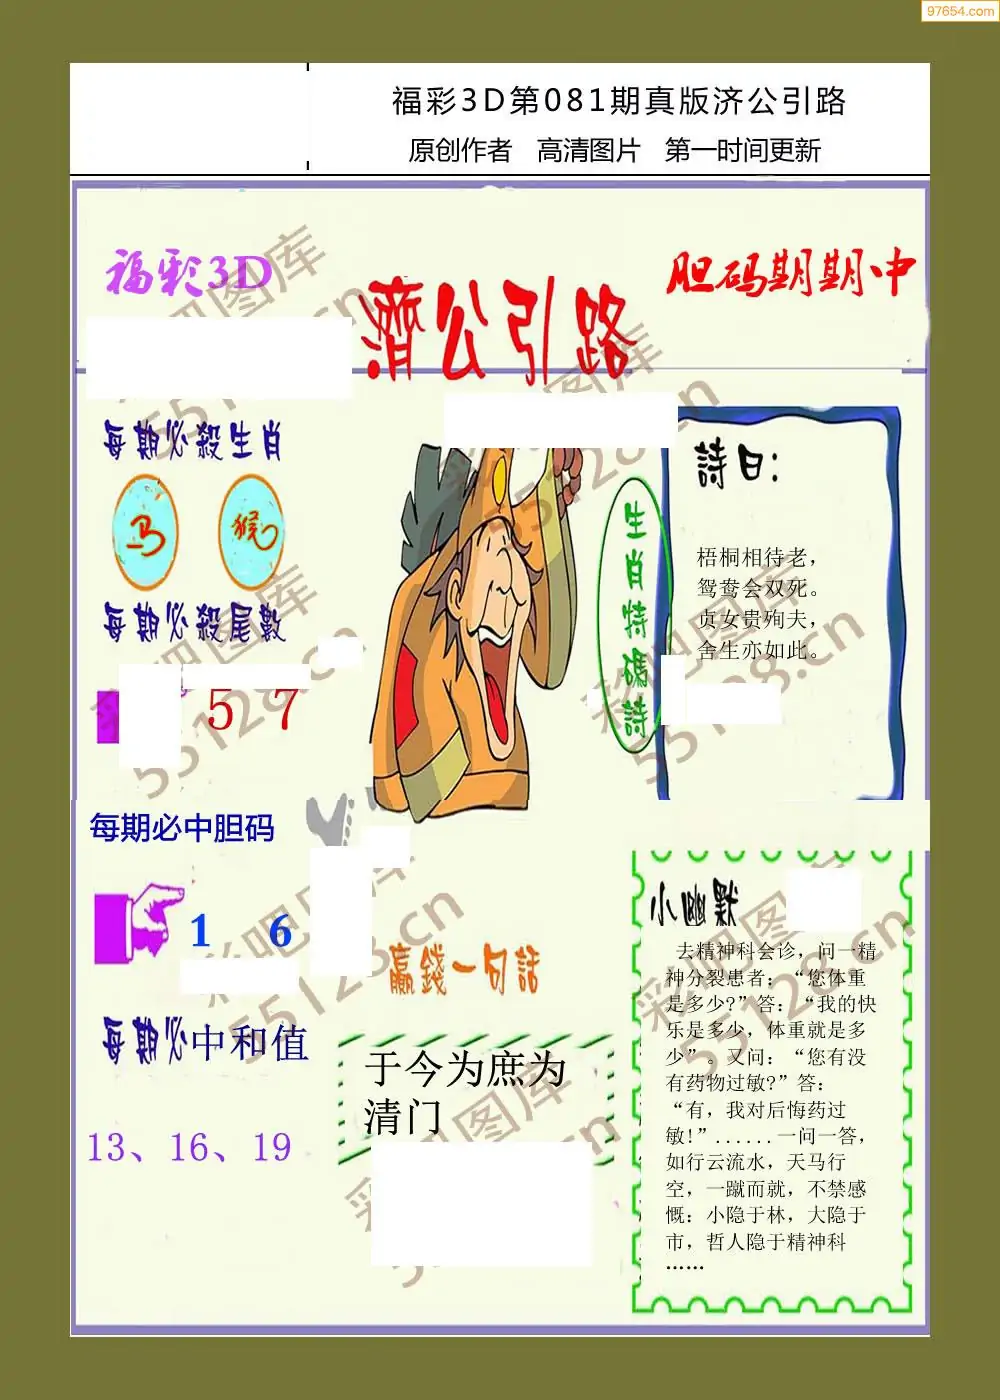 97654.com
福彩3D第081期真版济公引路
原创作者 高清图片 第一时间更新
福彩3D
胆码期期中
濟公引路
每期必殺生肖
马 猴
每期必殺尾數
5 7
每期必中胆码
1 6
每期必中和值
13、16、19
生肖特碼詩
詩曰:
梧桐相待老，
鸳鸯会双死。
贞女贵殉夫，
舍生亦如此。
赢錢一句話
于今为庶为
清门
小幽默
去精神科会诊，问一精
神分裂患者：“您体重
是多少?”答：“我的快
乐是多少，体重就是多
少”。又问：“您有没
有药物过敏?”答：
“有，我对后悔药过
敏!”......一问一答，
如行云流水，天马行
空，一蹴而就，不禁感
慨：小隐于林，大隐于
市，哲人隐于精神科
……
彩吧图库
55128.cn